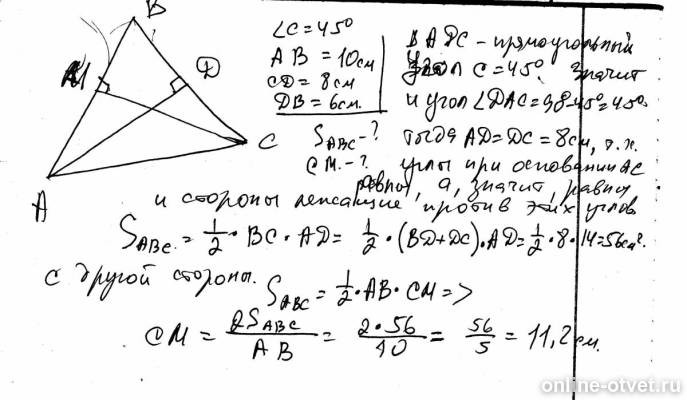 B
M
D
C
A
∠C=45°
AB=10см
CD=8см
DB=6см.
S_ABC-?
CM.-?
∆ ADC - прямоугольный
Угол C=45°. Значит
и угол ∠DAC=98-45°=45°
тогда AD=DC=8см, т.к.
углы при основании AC
равны, а, значит, равны
и стороны лежащие против этих углов
S_ABC = 1/2 · BC · AD = 1/2 · (BD+DC)·AD = 1/2 · 8 · 14=56см².
С другой стороны.
S_ABC = 1/2 · AB · CM =>
CM = 2S_ABC/AB = 2·56/10 = 56/5 = 11,2 см.
online-otvet.ru